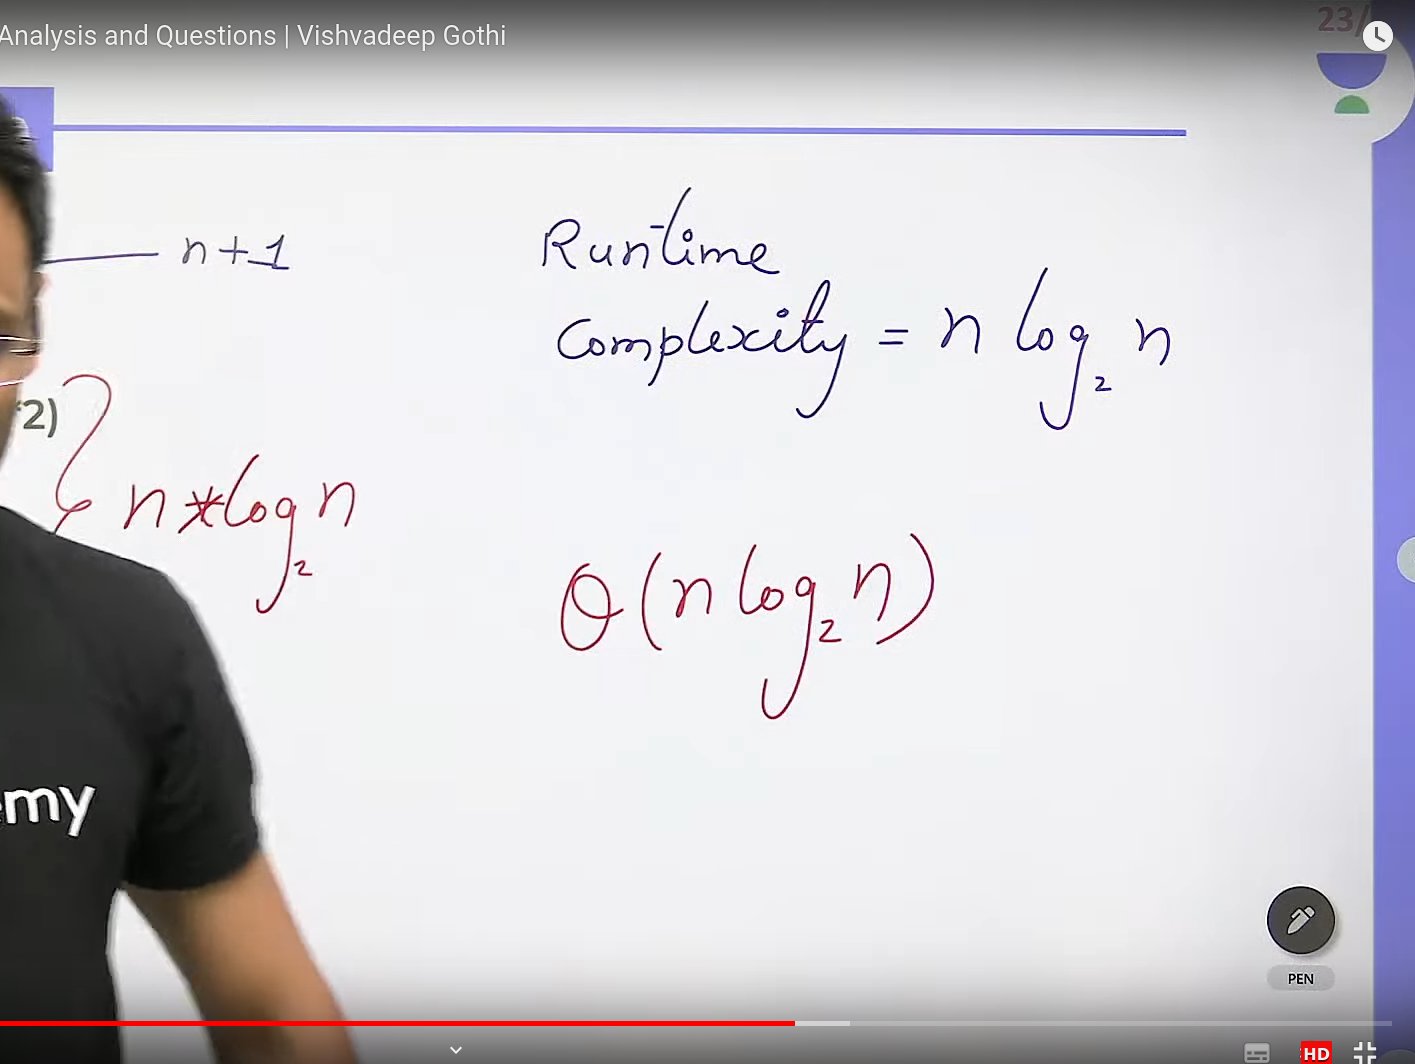 Analysis and Questions | Vishvadeep Gothi
23/
n+1
Runtime
Complexity = n log₂ n
*2)
n*log₂ n
θ(n log₂ n)
my
PEN
HD